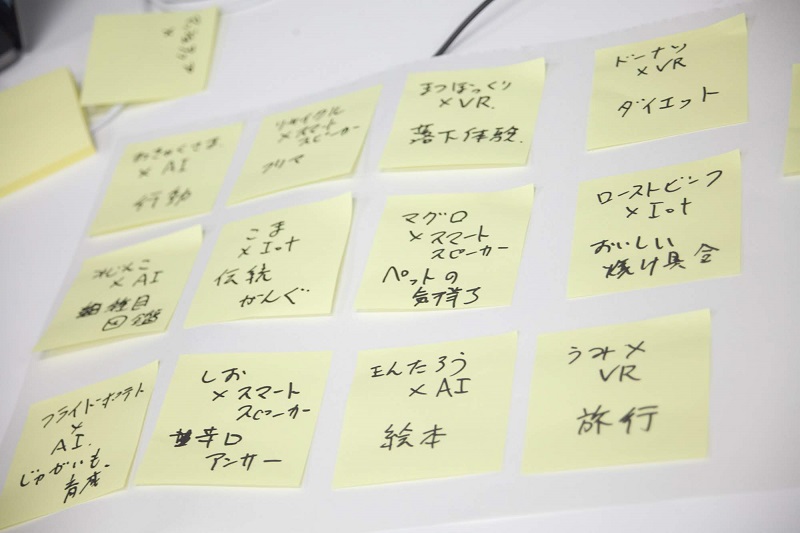 おきゃくさま
× AI
行動
リサイクル
×スマート
スピーカー
フリマ
まつぼっくり
× VR.
落下体験.
ドーナツ
× VR
ダイエット
× AI
種目
図鑑
こま
× IoT
伝統
がんぐ
マグロ
× スマート
スピーカー
ペットの
気持ち
ローストビーフ
× IoT
おいしい
焼け具合
フライドポテト
×
AI.
じゃがいも
育成.
しお
× スマート
スピーカー
辛口
アンサー
きんたろう
× AI
絵本
うみ ×
VR
旅行